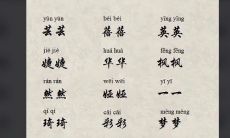 yún yún bèi bèi yīng yīng
芸芸 蓓蓓 英英
jié jié huá huá fēng fēng
婕婕 华华 枫枫
rán rán yī yī
然然 娅娅 一一
qí qí cǎi cǎi mèng mèng
琦琦 彩彩 梦梦